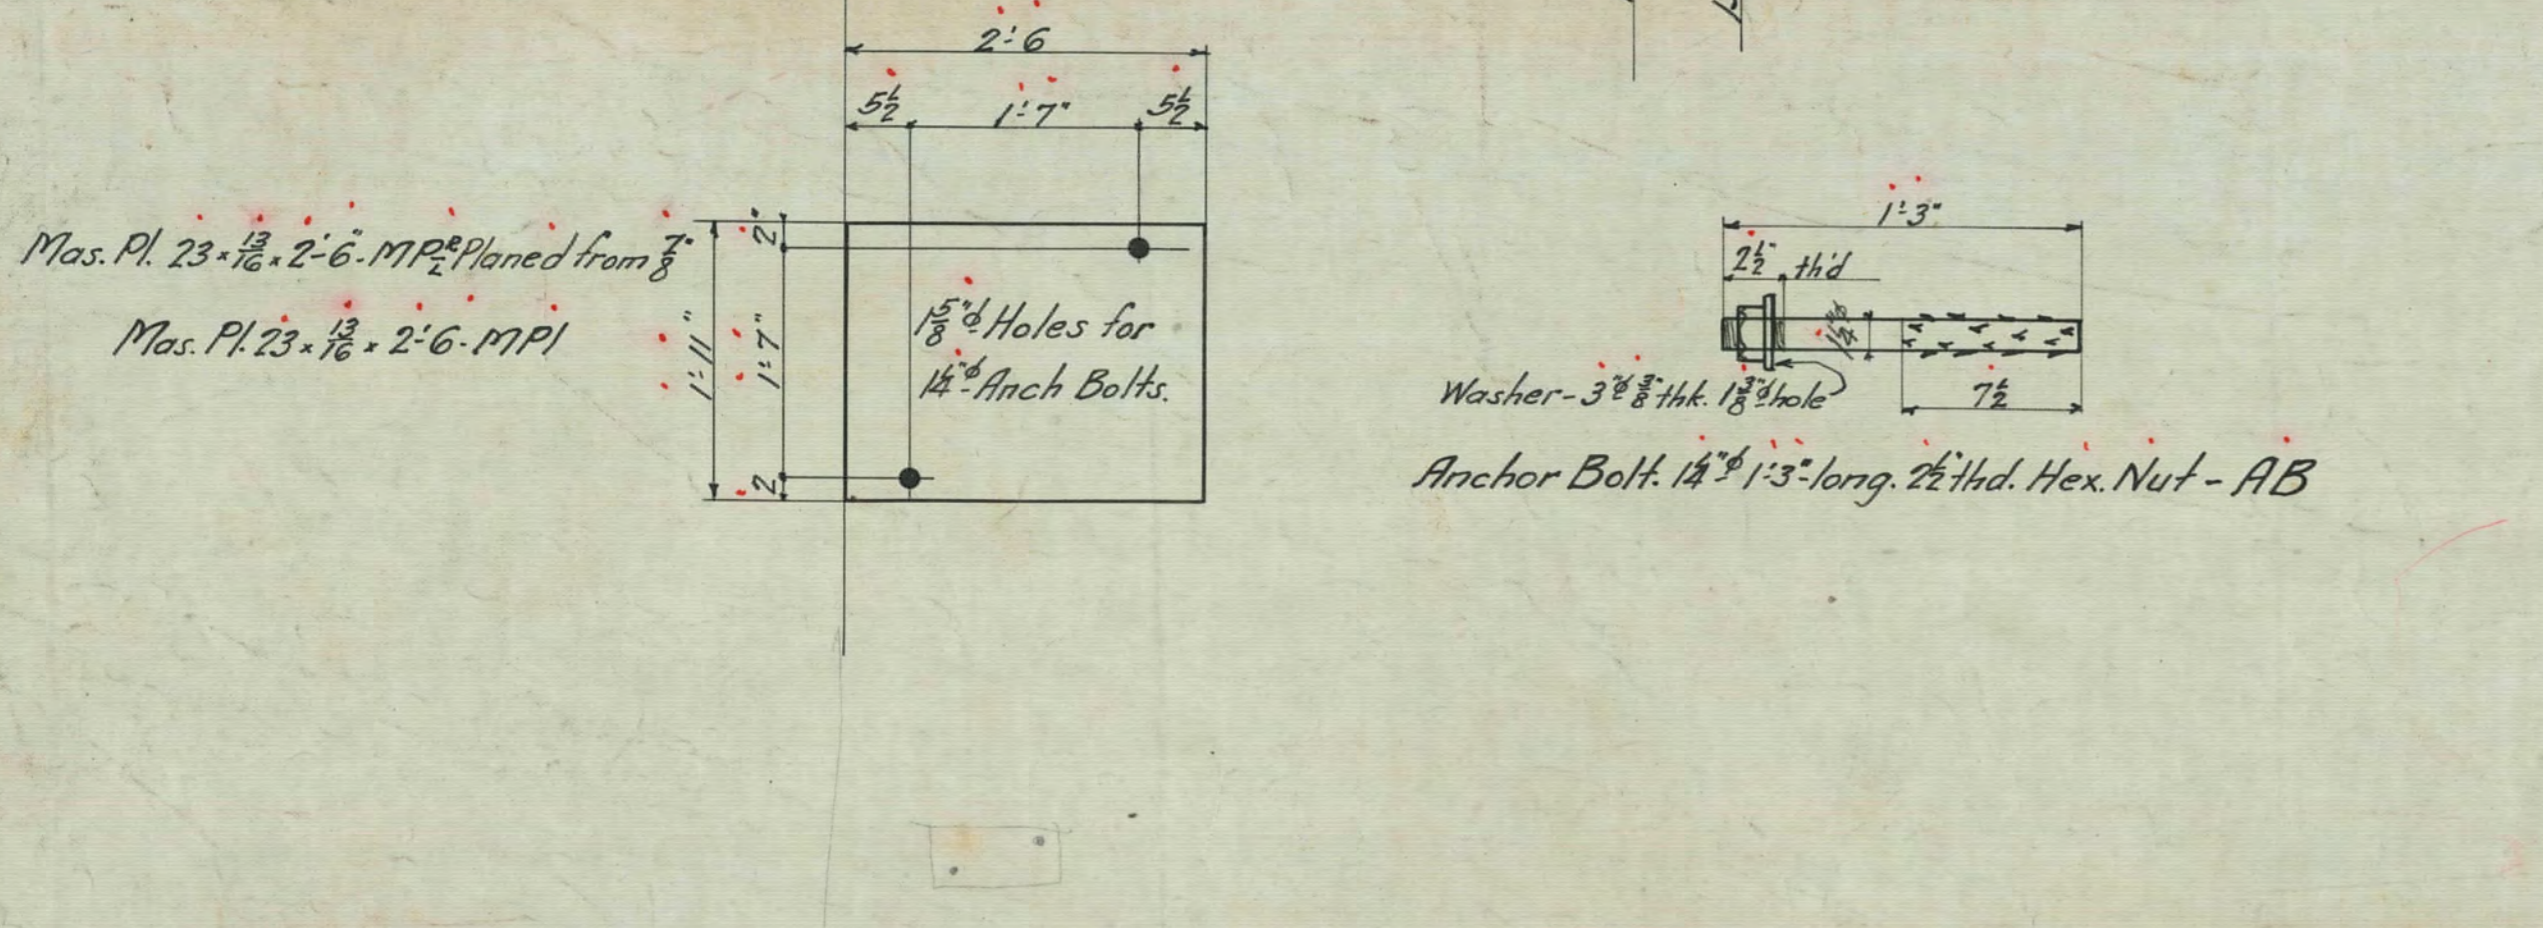 2'-6
5½ 1'-7" 5½
Mas. Pl. 23 x 13/16 x 2'-6"- MP R/L Planed from 7/8"
Mas. Pl. 23 x 13/16 x 2'-6 - MP1
2"
1'-11"
1'-7"
2
1 5/8"ø Holes for
1¼"ø Anch Bolts.
1'-3"
2½" th'd
1¼"ø
Washer - 3"ø 3/8" thk. 1 3/8"ø hole
7½
Anchor Bolt. 1¼"ø 1'-3" long. 2½" thd. Hex. Nut - AB